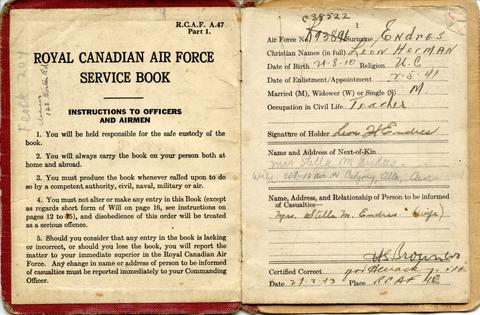 R.C.A.F. A.47
Part 1.
ROYAL CANADIAN AIR FORCE
SERVICE BOOK
INSTRUCTIONS TO OFFICERS
AND AIRMEN
1. You will be held responsible for the safe custody of the
book.
2. You will always carry the book on your person both at
home and abroad.
3. You must produce the book whenever called upon to do
so by a competent authority, civil, naval, military or air.
4. You must not alter or make any entry in this Book (except
as regards short form of Will on page 16, see instructions on
pages 12 to 15), and disobedience of this order will be treated
as a serious offence.
5. Should you consider that any entry in the book is lacking
or incorrect, or should you lose the book, you will report the
matter to your immediate superior in the Royal Canadian Air
Force. Any change in name or address of person to be informed
of casualties must be reported immediately to your Commanding
Officer.
C38522
Air Force No. Surname Endres
Christian Names (in full) Leon Herman
Date of Birth 21.8.10 Religion
Date of Enlistment/Appointment 41
Married (M), Widower (W) or Single (S) M
Occupation in Civil Life Teacher
Signature of Holder Leon H Endres
Name and Address of Next-of-Kin
Mrs Stella M Endres
wife Calgary, Alta,
Name, Address, and Relationship of Person to be informed
of Casualties—
Mrs. Stella M. Endres (wife)
Certified Correct
Date Place RCAF